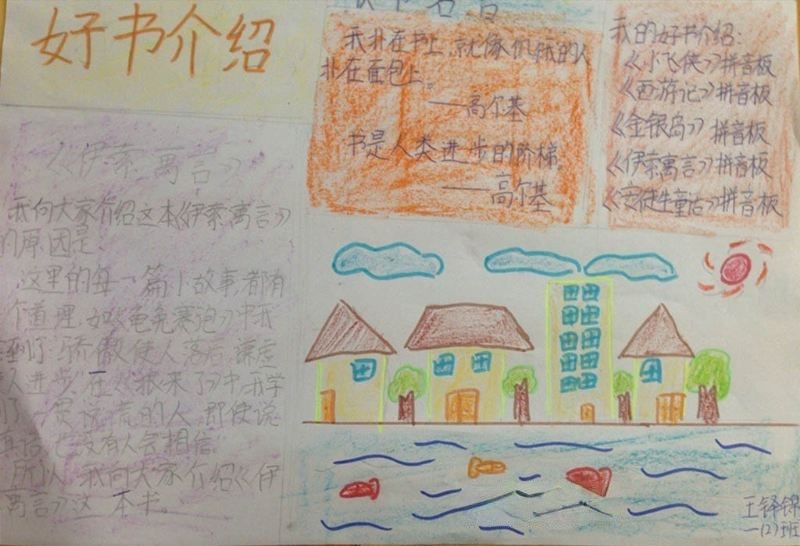 好书介绍
名言
我扑在书上,就像饥饿的人
扑在面包上。
——高尔基
书是人类进步的阶梯
——高尔基
我的好书介绍:
《小飞侠》拼音板
《西游记》拼音板
《金银岛》拼音板
《伊索寓言》拼音板
《安徒生童话》拼音板
《伊索寓言》
我向大家介绍这本《伊索寓言》
的原因是:
这里的每一篇小故事都有
个道理,如《龟兔赛跑》中我
到了骄傲使人落后,谦虚
人进步。在《狼来了》中,我学
了爱说谎的人,即使说
真话也没有人会相信。
所以,我向大家介绍《伊
寓言》这一本书。
王铎锦
一(2)班